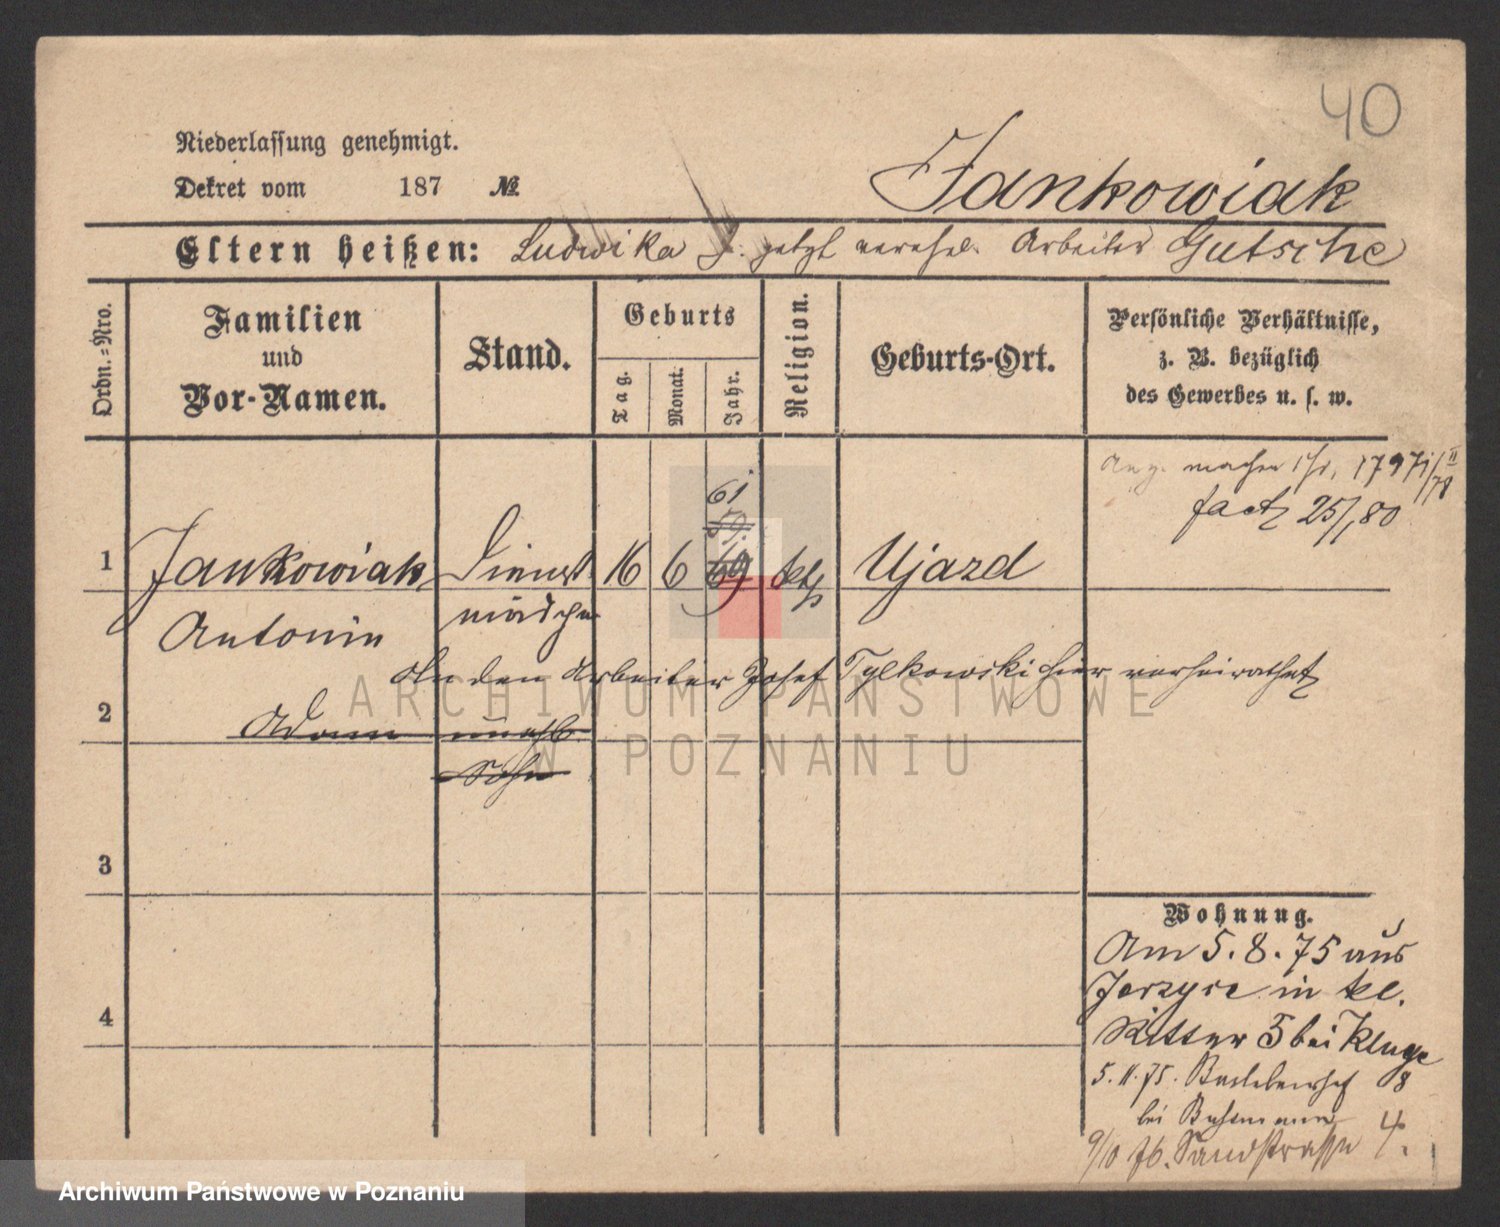 40
Niederlassung genehmigt.
Dekret vom 187 №
Jankowiak
Eltern heißen: Ludwika J. jetzt verehel. Arbeiter Gutsche
Ordn.=Nro.
Familien und Vor-Namen.
Stand.
Geburts
Tag.
Monat.
Jahr.
Religion.
Geburts-Ort.
Persönliche Verhältnisse,
z. B. bezüglich
des Gewerbes u. s. w.
61
1 Jankowiak Dienst 16 6 69 kth Ujazd
Antonin mädchen
25/80
An den Arbeiter Josef Tylkowski hier verheirathet
2 Adam unehl.
Sohn
3
4
Wohnung.
Am 5.8.75 aus
Jerzyce in kl.
Ritter 5 bei Kluge
5.11.75. 8
bei
9/10 76. Sandstrasse 4.
ARCHIWUM PAŃSTWOWE
W POZNANIU
Archiwum Państwowe w Poznaniu